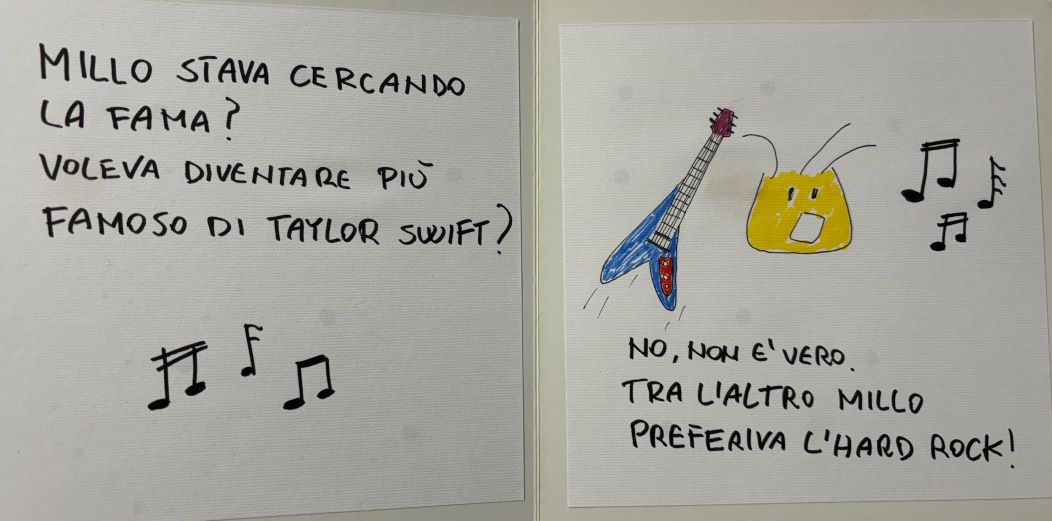 MILLO STAVA CERCANDO
LA FAMA?
VOLEVA DIVENTARE PIÙ
FAMOSO DI TAYLOR SWIFT?
NO, NON E' VERO.
TRA L'ALTRO MILLO
PREFERIVA L'HARD ROCK!